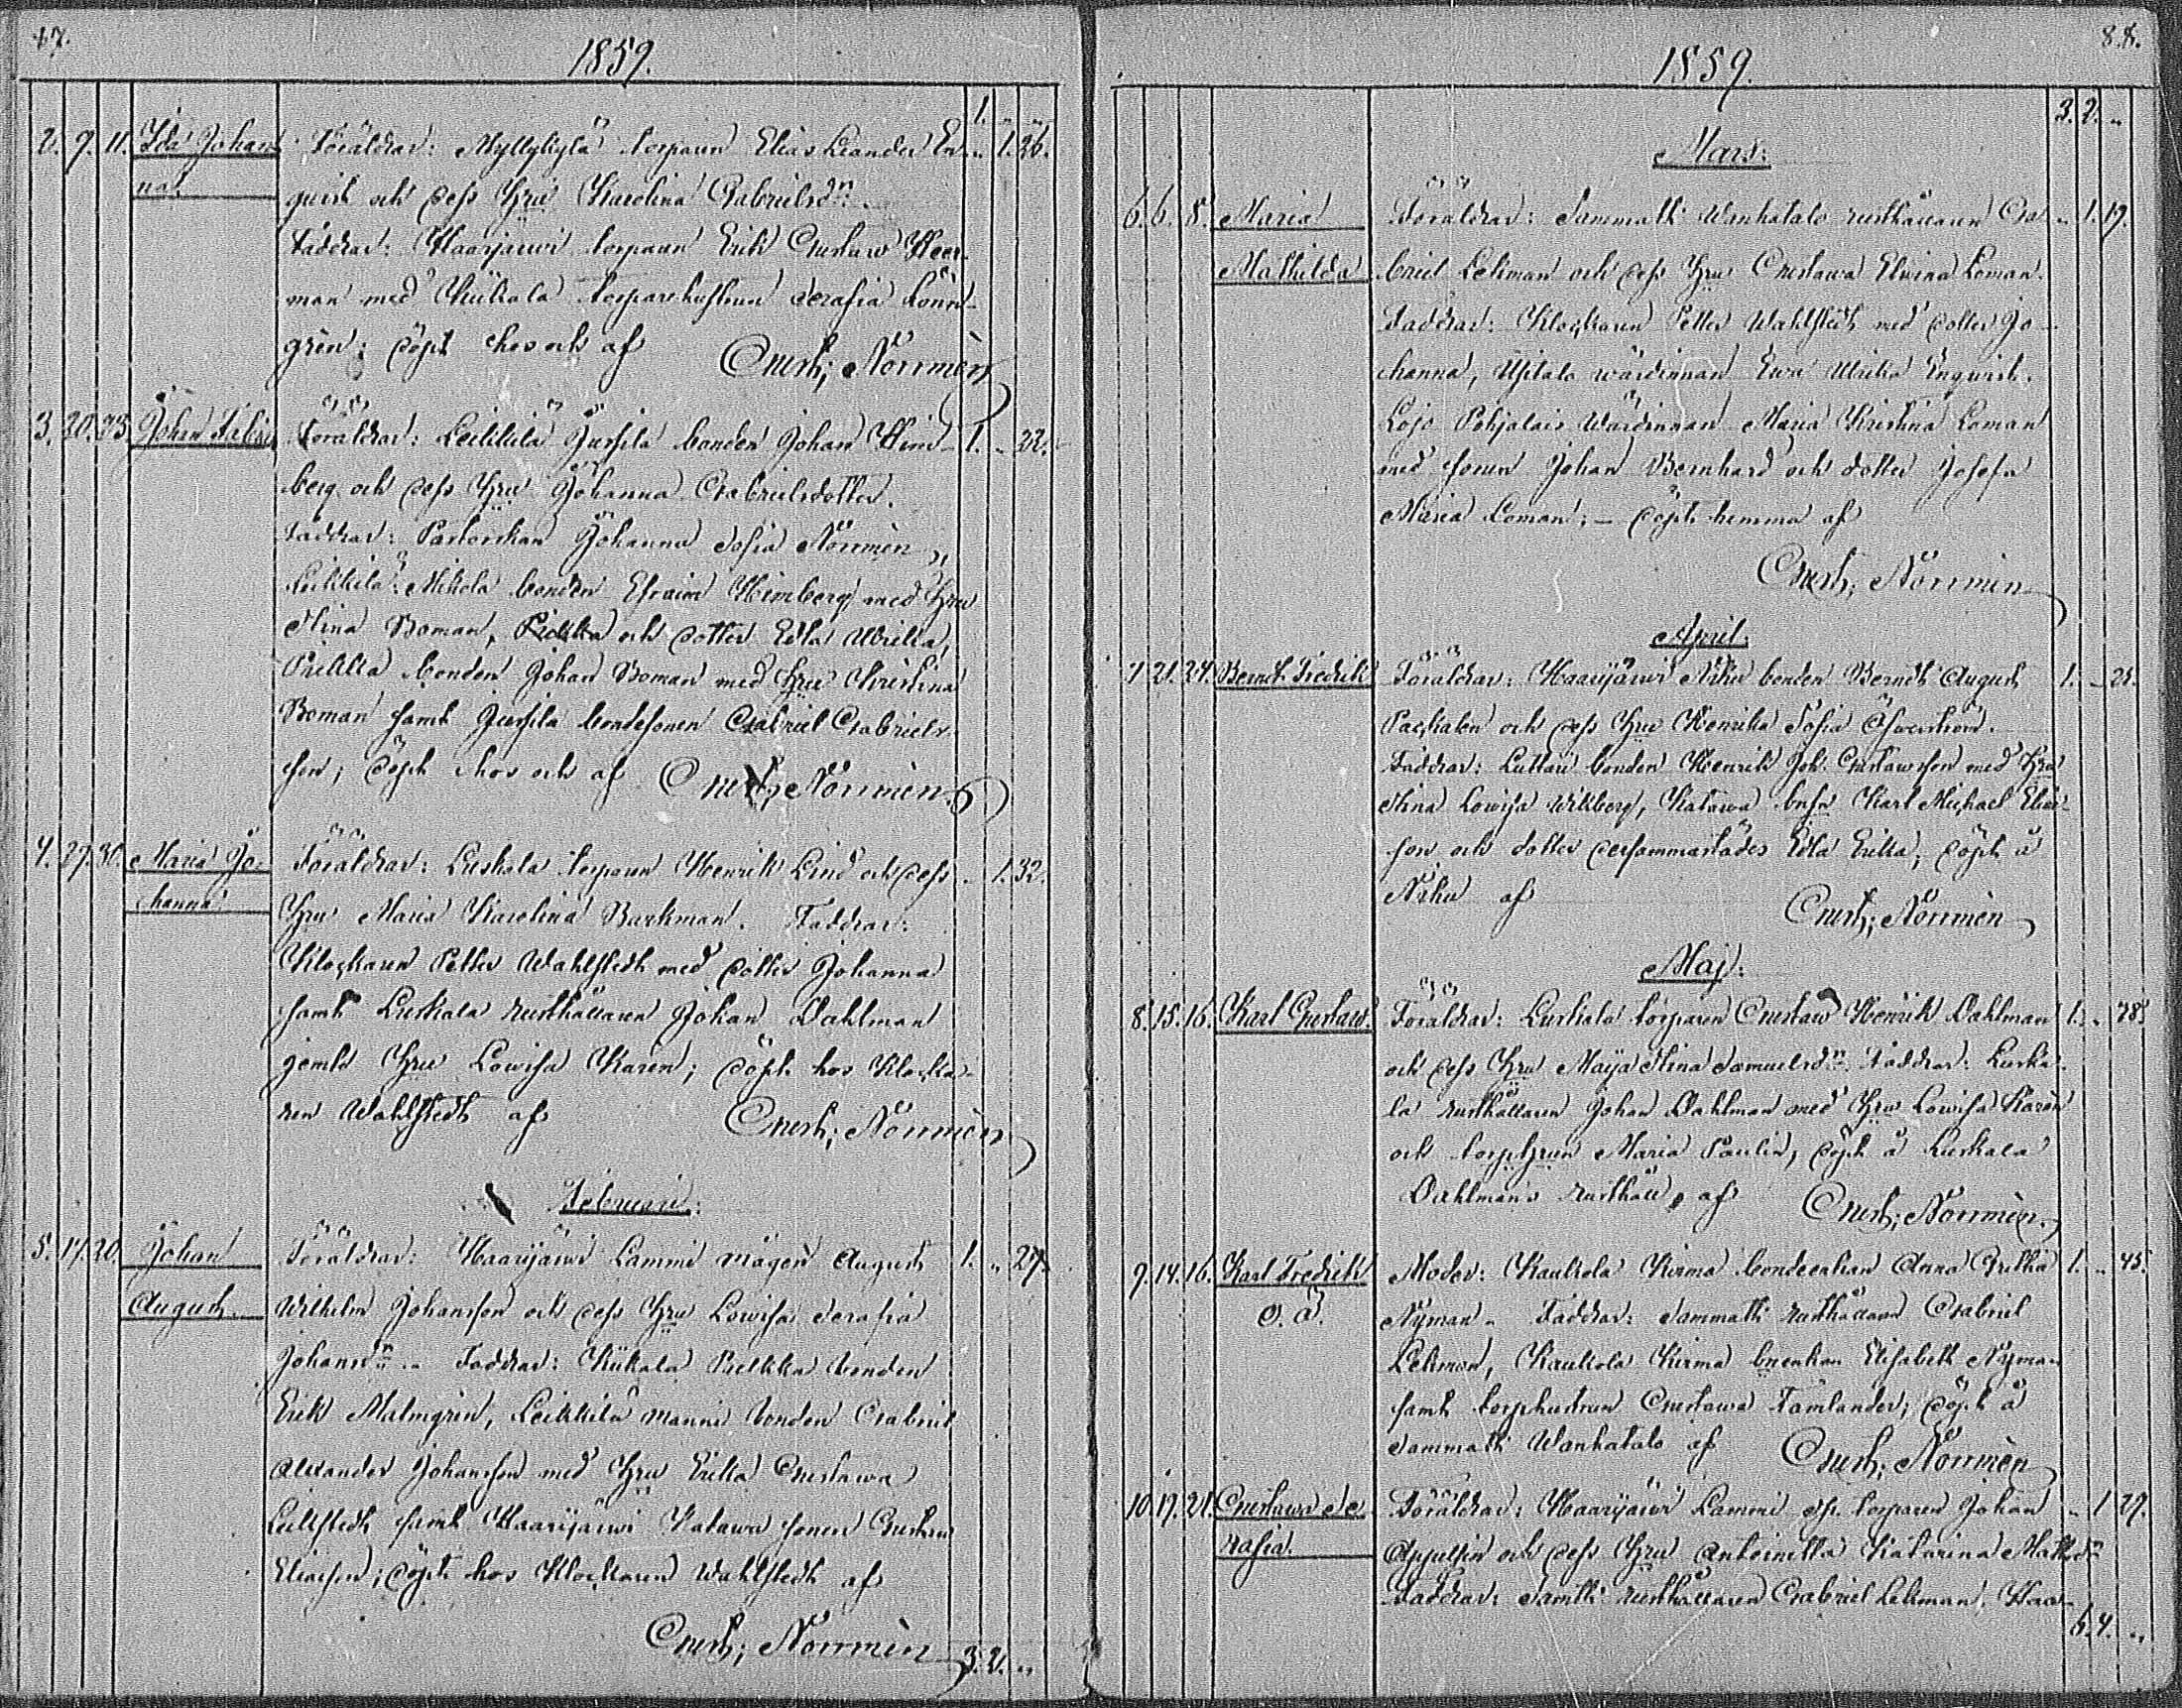 47.
1859.
1. „ „
2. 9. 11. Ida Johan Föräldrar: Myllykylä torparn Elias Leander En „ 1. 26.
na qvist och dess hru Karolina Gabrielsdr.
Faddrar: Haarjärwi torparn Erik Gustaw Heer-
man med Kükala torparehustrun Serafia Lönn-
grèn; döpt hos och af Gust; Norrmèn
3. 20. 23. Johan Föräldrar: Leikkilä Jussila bonden Johan Him 1. „ 32.
berg och dess hru Johanna Gabrielsdotter.
Faddrar: Pastorskan Johanna Sofia Norrmèn,
Leikkilä Mikola bonden Efraim Himberg med hru
Stina Boman, och dotter Edla Ulrika,
Prikka bonden Johan Boman med hru Christina
Boman samt Jussila bondesonen Gabriel Gabriels-
son; döpt hos och af Gust; Norrmèn
4. 27. 30. Maria Jo- Föräldrar: Luskala torparn Henrik Lind och dess „ 1. 32.
hanna Hru Maria Karolina Barkman. Faddrar:
Klockaren Petter Wahlstedt med dotter Johanna
samt Luskala rusthållaren Johan Dahlman
jemte Hru Lowisa Karèn; döpt hos Klocka-
ren Wahlstedt af Gust; Norrmèn
Februari.
5. 17. 20. Johan Föräldrar: Haarjärwi Lammi mågen August 1. „ 27.
August. Wilhelm Johansson och dess hru Lowisa Serafia
Johansdr. Faddrar: Kükala Prikka bonden
Erik Malmgrèn, Leikkilä Manni bonden Gabriel
Alexander Johansson med hru Erika Gustawa
Leikstedt samt Haarjärwi Katawa sonen Gustaw
Eliasson; döpt hos Klockaren Wahlstedt af
Gust; Norrmèn
3. 2. „
88.
1859.
3. 2. „
Mars:
6. 6. 8. Maria Föräldrar: Sammatti Wanhatalo rusthållaren Ga „ 1. 19.
Mathilda briel Lekman och dess hru Gustawa Elvina Loman.
Faddrar: Klockaren Petter Wahlstedt med dotter Jo-
hanna, Uusitalo wärdinnan Ewa Ulrika Engqvist.
Lojo Pohjalais Wärdinnan Maria Kristina Loman
med sonen Johan Bernhard och dotter Josefa
Maria Loman; – döpt hemma af
Gust; Norrmèn
April.
7. 21. 24. Berndt Fredrik Föräldrar: Haarijärwi Nihu bonden Berndt August 1. „ 25.
och dess hru Henrika Sofia
Faddrar: Luttari bonden Henrik Joh. Gustawsson med hru
Stina Lowisa Wikberg, Katawa Karl Michael Elias-
son och dotter dersammastädes Edla Erika, döpt å
Nihu af Gust; Norrmèn
Maj:
8. 15. 16. Karl Gustaw. Föräldrar: Luskala torparen Gustaw Henrik Dahlman 1. „ 28.
och dess hru Maija Stina Samuelsdr. Faddrar: Luska-
la rusthållaren Johan Dahlman med hru Lowisa Karèn
och torphrun Maria Paulin, döpt å Luskala
Dahlmans rusthåll, af Gust; Norrmèn.
9. 14. 16. Karl Fredrik Moder: Kaukola Kirma bondeenkan Anna Brita 1. „ 45.
O. Ä. Nyman. Faddrar: Sammatti rusthållaren Gabriel
Lekman, Kaukola Kirma Elisabeth Nyman
samt torphustrun Gustawa Tamlander; döpt å
Sammatti Wanhatalo af Gust; Norrmèn
10. 17. 21. Gustawa Se- Föräldrar: Haarjärwi Lammi torparen Johan „ 1. 27.
rafia. och dess hru Antoinetta Katarina
Faddrar: Samtti rusthållaren Gabriel Lekman, Haa-
6. 4. „